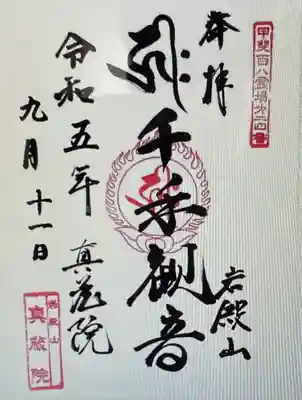 甲斐百八霊場
奉拝
千手観音
岩殿山
令和五年
真蔵院
九月十一日
岩殿山
真蔵院